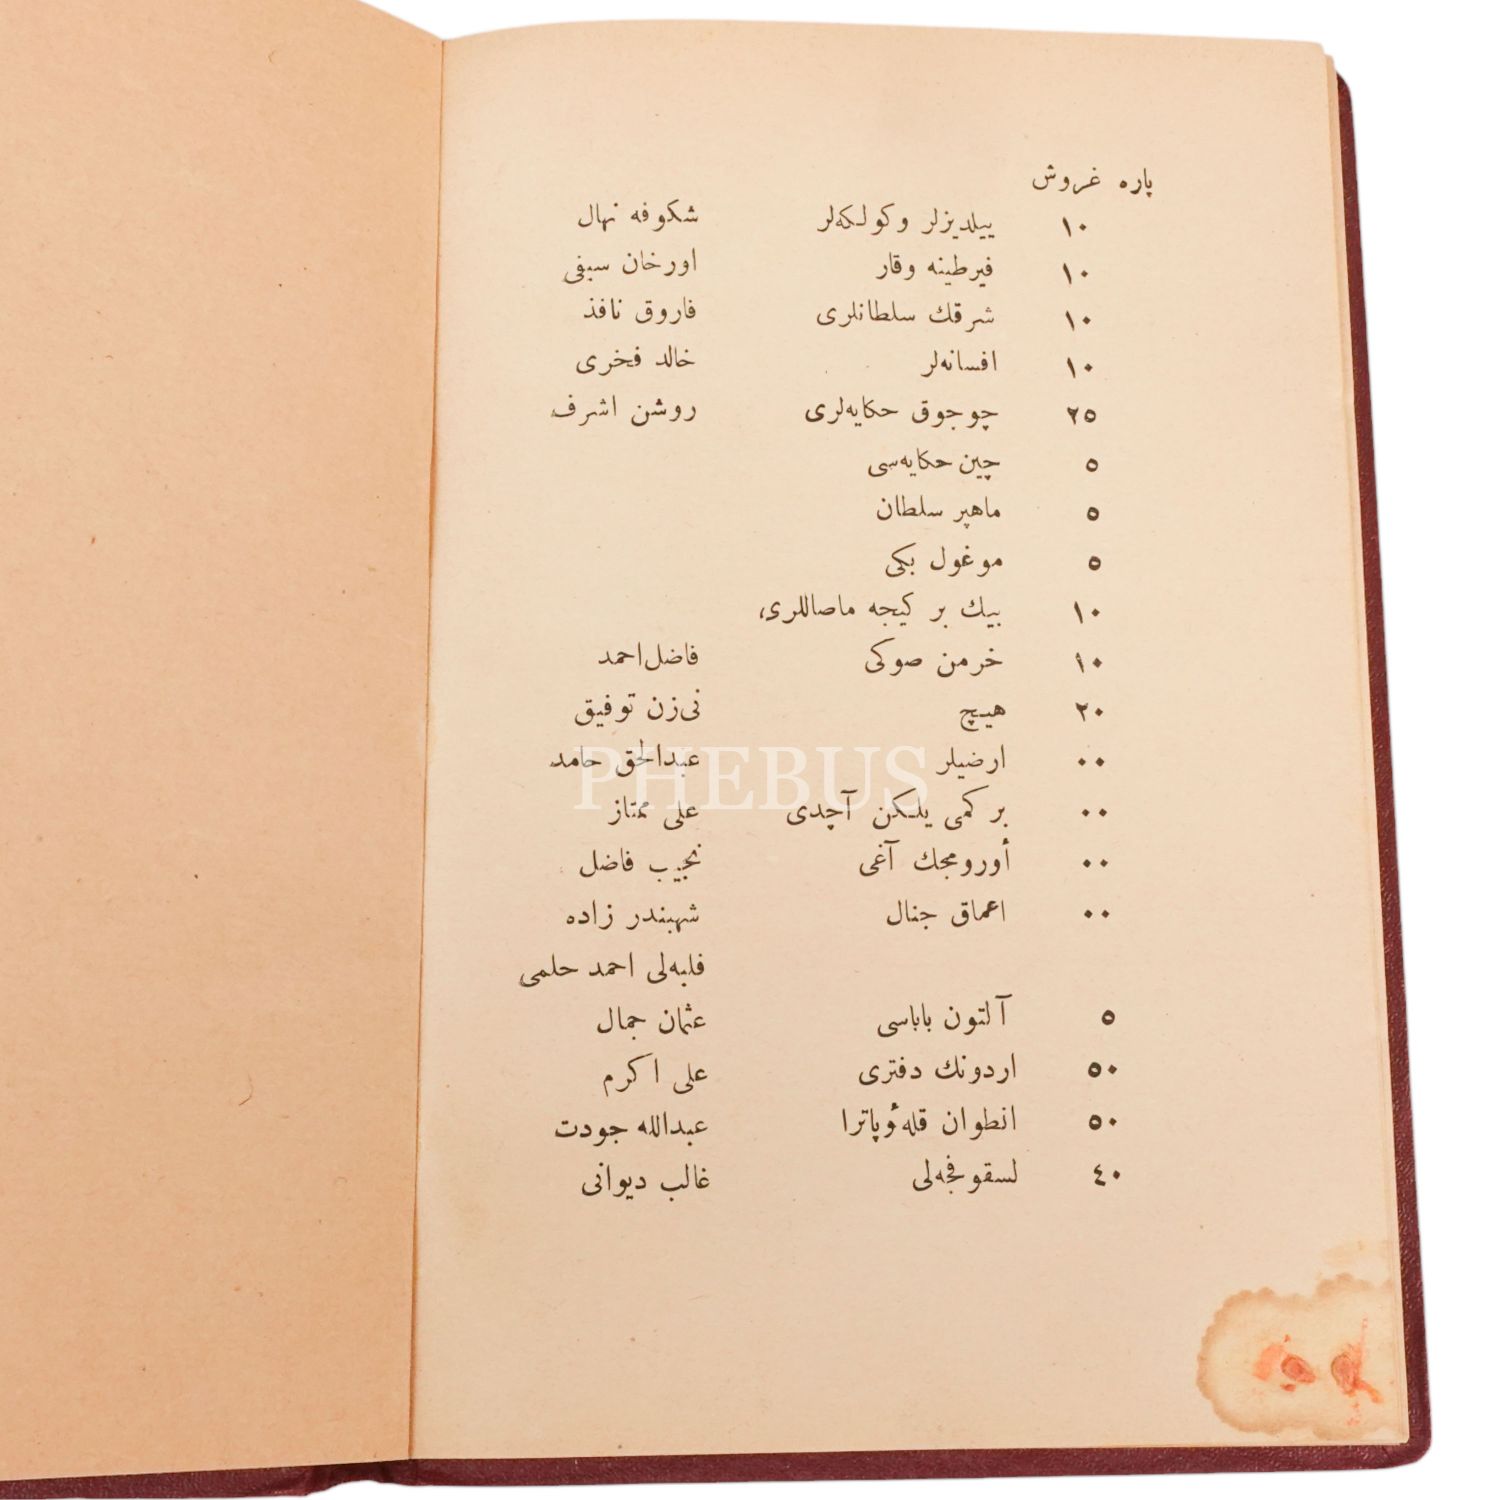 پاره غروش
١٠ ييلديزلر وكولكه‌لر شكوفه نهال
١٠ فيرطينه وقار اورخان سيفى
١٠ شرقك سلطانلرى فاروق نافذ
١٠ افسانه‌لر خالد فخرى
٢٥ چوجوق حكايه‌لرى روشن اشرف
٥ چين حكايه‌سى
٥ ماهپر سلطان
٥ موغول بكى
١٠ بيك بر كيجه ماصاللرى،
١٠ خرمن صوكى فاضل احمد
٢٠ هيچ نى‌زن توفيق
٠٠ ارضيلر عبدالحق حامد
٠٠ بر كمى يلكن آچدى على ممتاز
٠٠ أورومجك آغى نجيب فاضل
٠٠ اعماق جنال شهبندر زاده
فلبه‌لى احمد حلمى
٥ آلتون باباسى عثمان جمال
٥٠ اردونك دفترى على اكرم
٥٠ انطوان قله‌ؤپاترا عبدالله جودت
٤٠ لسقوفجه‌لى غالب ديوانى
PHEBUS